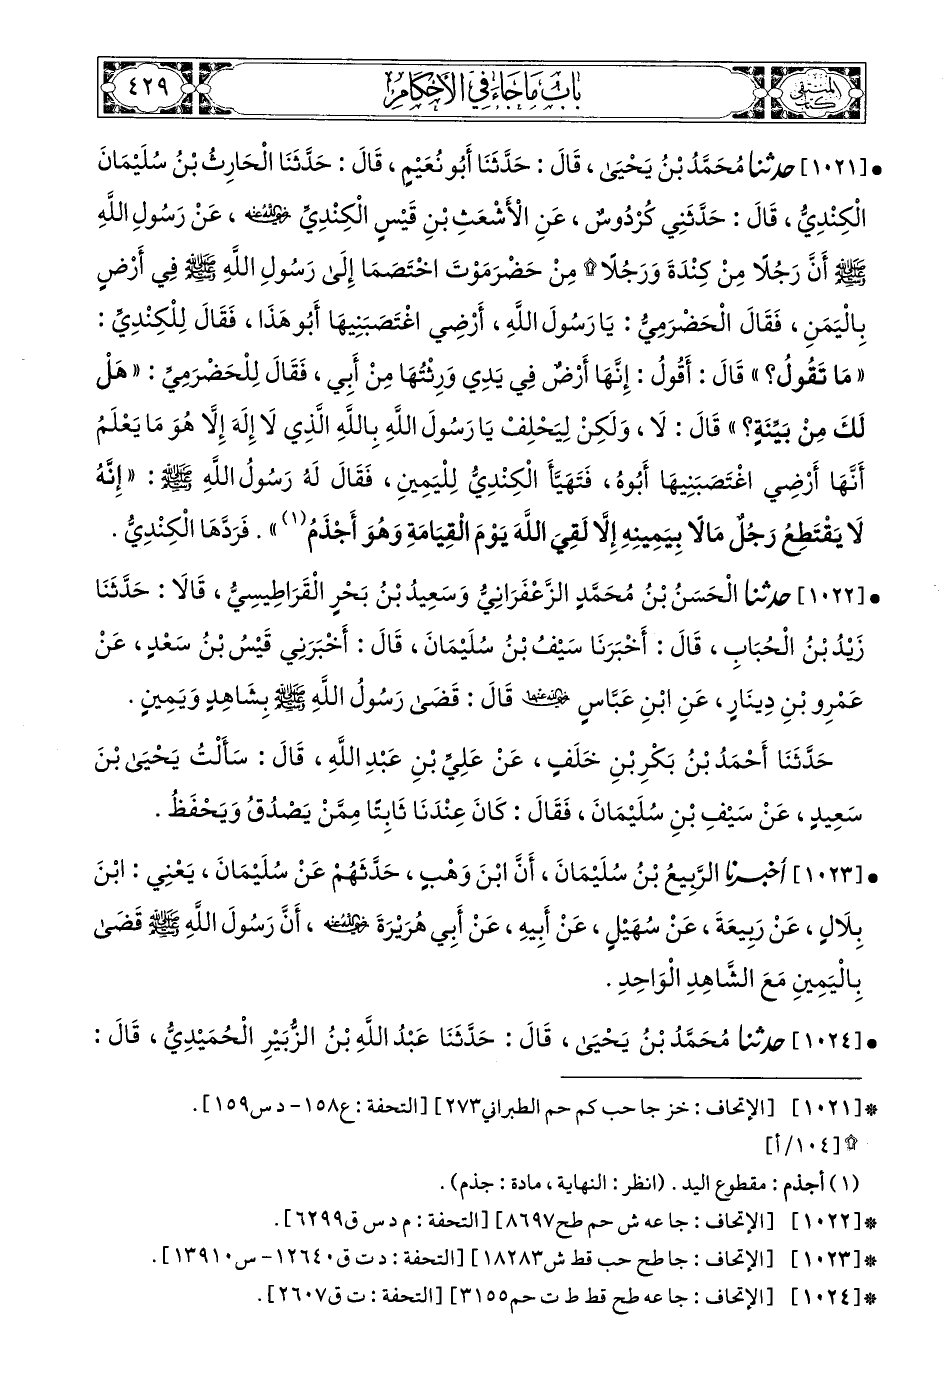 المنتقى كتاب باب ما جاء في الأحكام ٤٢٩
• [١٠٢١] حدثنا مُحَمَّدُ بْنُ يَحْيَى ، قَالَ : حَدَّثَنَا أَبُو نُعَيْمٍ ، قَالَ : حَدَّثَنَا الْحَارِثُ بْنُ سُلَيْمَانَ
الْكِنْدِيُّ ، قَالَ : حَدَّثَنِي كُرْدُوسٌ ، عَنِ الْأَشْعَثِ بْنِ قَيْسٍ الْكِنْدِيِّ رضي الله عنه ، عَنْ رَسُولِ اللَّهِ
ﷺ أَنَّ رَجُلًا مِنْ كِنْدَةَ وَرَجُلًا۩ مِنْ حَضْرَمَوْتَ اخْتَصَمَا إِلَى رَسُولِ اللَّهِ ﷺ فِي أَرْضٍ
بِالْيَمَنِ ، فَقَالَ الْحَضْرَمِيُّ : يَا رَسُولَ اللَّهِ ، أَرْضِي اغْتَصَبَنِيهَا أَبُو هَذَا ، فَقَالَ لِلْكِنْدِيِّ :
« مَا تَقُولُ؟ » قَالَ : أَقُولُ : إِنَّهَا أَرْضٌ فِي يَدِي وَرِثْتُهَا مِنْ أَبِي ، فَقَالَ لِلْحَضْرَمِيِّ : « هَلْ
لَكَ مِنْ بَيِّنَةٍ؟ » قَالَ : لَا ، وَلَكِنْ لِيَحْلِفْ يَا رَسُولَ اللَّهِ بِاللَّهِ الَّذِي لَا إِلَهَ إِلَّا هُوَ مَا يَعْلَمُ
أَنَّهَا أَرْضِي اغْتَصَبَنِيهَا أَبُوهُ ، فَتَهَيَّأَ الْكِنْدِيُّ لِلْيَمِينِ ، فَقَالَ لَهُ رَسُولُ اللَّهِ ﷺ : « إِنَّهُ
لَا يَقْتَطِعُ رَجُلٌ مَالًا بِيَمِينِهِ إِلَّا لَقِيَ اللَّهَ يَوْمَ الْقِيَامَةِ وَهُوَ أَجْذَمُ(١) » . فَرَدَّهَا الْكِنْدِيُّ .
• [١٠٢٢] حدثنا الْحَسَنُ بْنُ مُحَمَّدٍ الزَّعْفَرَانِيُّ وَسَعِيدُ بْنُ بَحْرٍ الْقَرَاطِيسِيُّ ، قَالَا : حَدَّثَنَا
زَيْدُ بْنُ الْحُبَابِ ، قَالَ : أَخْبَرَنَا سَيْفُ بْنُ سُلَيْمَانَ ، قَالَ : أَخْبَرَنِي قَيْسُ بْنُ سَعْدٍ ، عَنْ
عَمْرِو بْنِ دِينَارٍ ، عَنِ ابْنِ عَبَّاسٍ رضي الله عنهما قَالَ : قَضَى رَسُولُ اللَّهِ ﷺ بِشَاهِدٍ وَيَمِينٍ .
حَدَّثَنَا أَحْمَدُ بْنُ بَكْرِ بْنِ خَلَفٍ ، عَنْ عَلِيِّ بْنِ عَبْدِ اللَّهِ ، قَالَ : سَأَلْتُ يَحْيَى بْنَ
سَعِيدٍ ، عَنْ سَيْفِ بْنِ سُلَيْمَانَ ، فَقَالَ : كَانَ عِنْدَنَا ثَابِتًا مِمَّنْ يَصْدُقُ وَيَحْفَظُ .
• [١٠٢٣] أخبرنا الرَّبِيعُ بْنُ سُلَيْمَانَ ، أَنَّ ابْنَ وَهْبٍ ، حَدَّثَهُمْ عَنْ سُلَيْمَانَ ، يَعْنِي : ابْنَ
بِلَالٍ ، عَنْ رَبِيعَةَ ، عَنْ سُهَيْلٍ ، عَنْ أَبِيهِ ، عَنْ أَبِي هُرَيْرَةَ رضي الله عنه ، أَنَّ رَسُولَ اللَّهِ ﷺ قَضَى
بِالْيَمِينِ مَعَ الشَّاهِدِ الْوَاحِدِ .
• [١٠٢٤] حدثنا مُحَمَّدُ بْنُ يَحْيَى ، قَالَ : حَدَّثَنَا عَبْدُ اللَّهِ بْنُ الزُّبَيْرِ الْحُمَيْدِيُّ ، قَالَ :
* [١٠٢١] [الإتحاف : خز جا حب كم حم الطبراني ٢٧٣] [التحفة : ع ١٥٨ - د س ١٥٩] .
۩ [١٠٤/أ]
(١) أجذم : مقطوع اليد . (انظر : النهاية ، مادة : جذم) .
* [١٠٢٢] [الإتحاف : جا عه ش حم طح ٨٦٩٧] [التحفة : م د س ق ٦٢٩٩] .
* [١٠٢٣] [الإتحاف : جا طح حب قط ش ١٨٢٨٣] [التحفة : د ت ق ١٢٦٤٠ - س ١٣٩١٠] .
* [١٠٢٤] [الإتحاف : جا عه طح قط ط ت حم ٣١٥٥] [التحفة : ت ق ٢٦٠٧] .